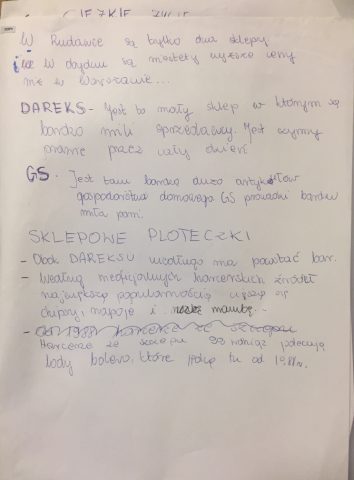 W Rudawce są tylko dwa sklepy
i w są niestety wyższe ceny
niż w Warszawie...
DAREKS - Jest to mały sklep w którym są
bardzo mili sprzedawcy. Jest czynny
prawie przez cały dzień
GS. Jest tam bardzo dużo artykułów
gospodarstwa domowego GS prowadzi bardzo
miła pani.
SKLEPOWE PLOTECZKI
- Obok DAREKSU niedługo ma powstać bar.
- Według nieoficjalnych harcerskich źródeł
największą popularnością cieszą się
chipsy, napoje i
- Od 1988r
Harcerze ze szczepu 99 również polecają
lody które jedzą tu od 1988r.